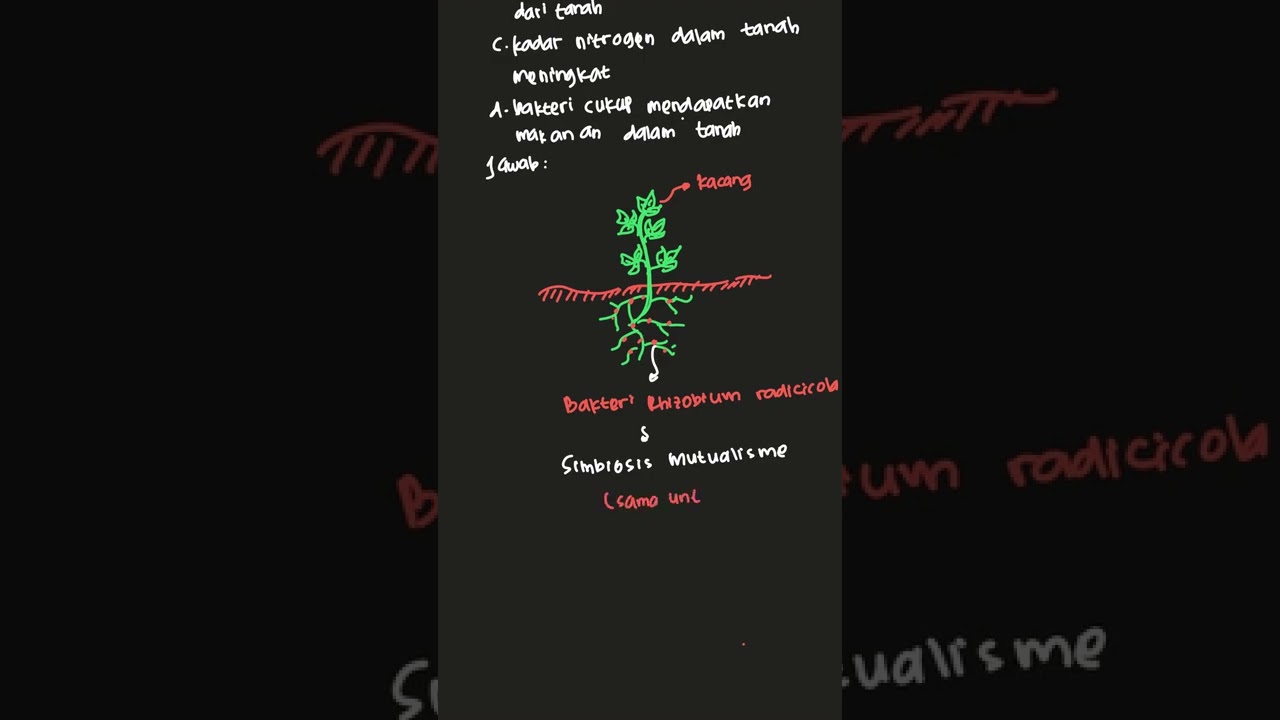 dari tanah
c. kadar nitrogen dalam tanah
meningkat
d. bakteri cukup mendapatkan
makanan dalam tanah
Jawab:
kacang
Bakteri Rhizobium radicicola
Simbiosis mutualisme
(sama unt